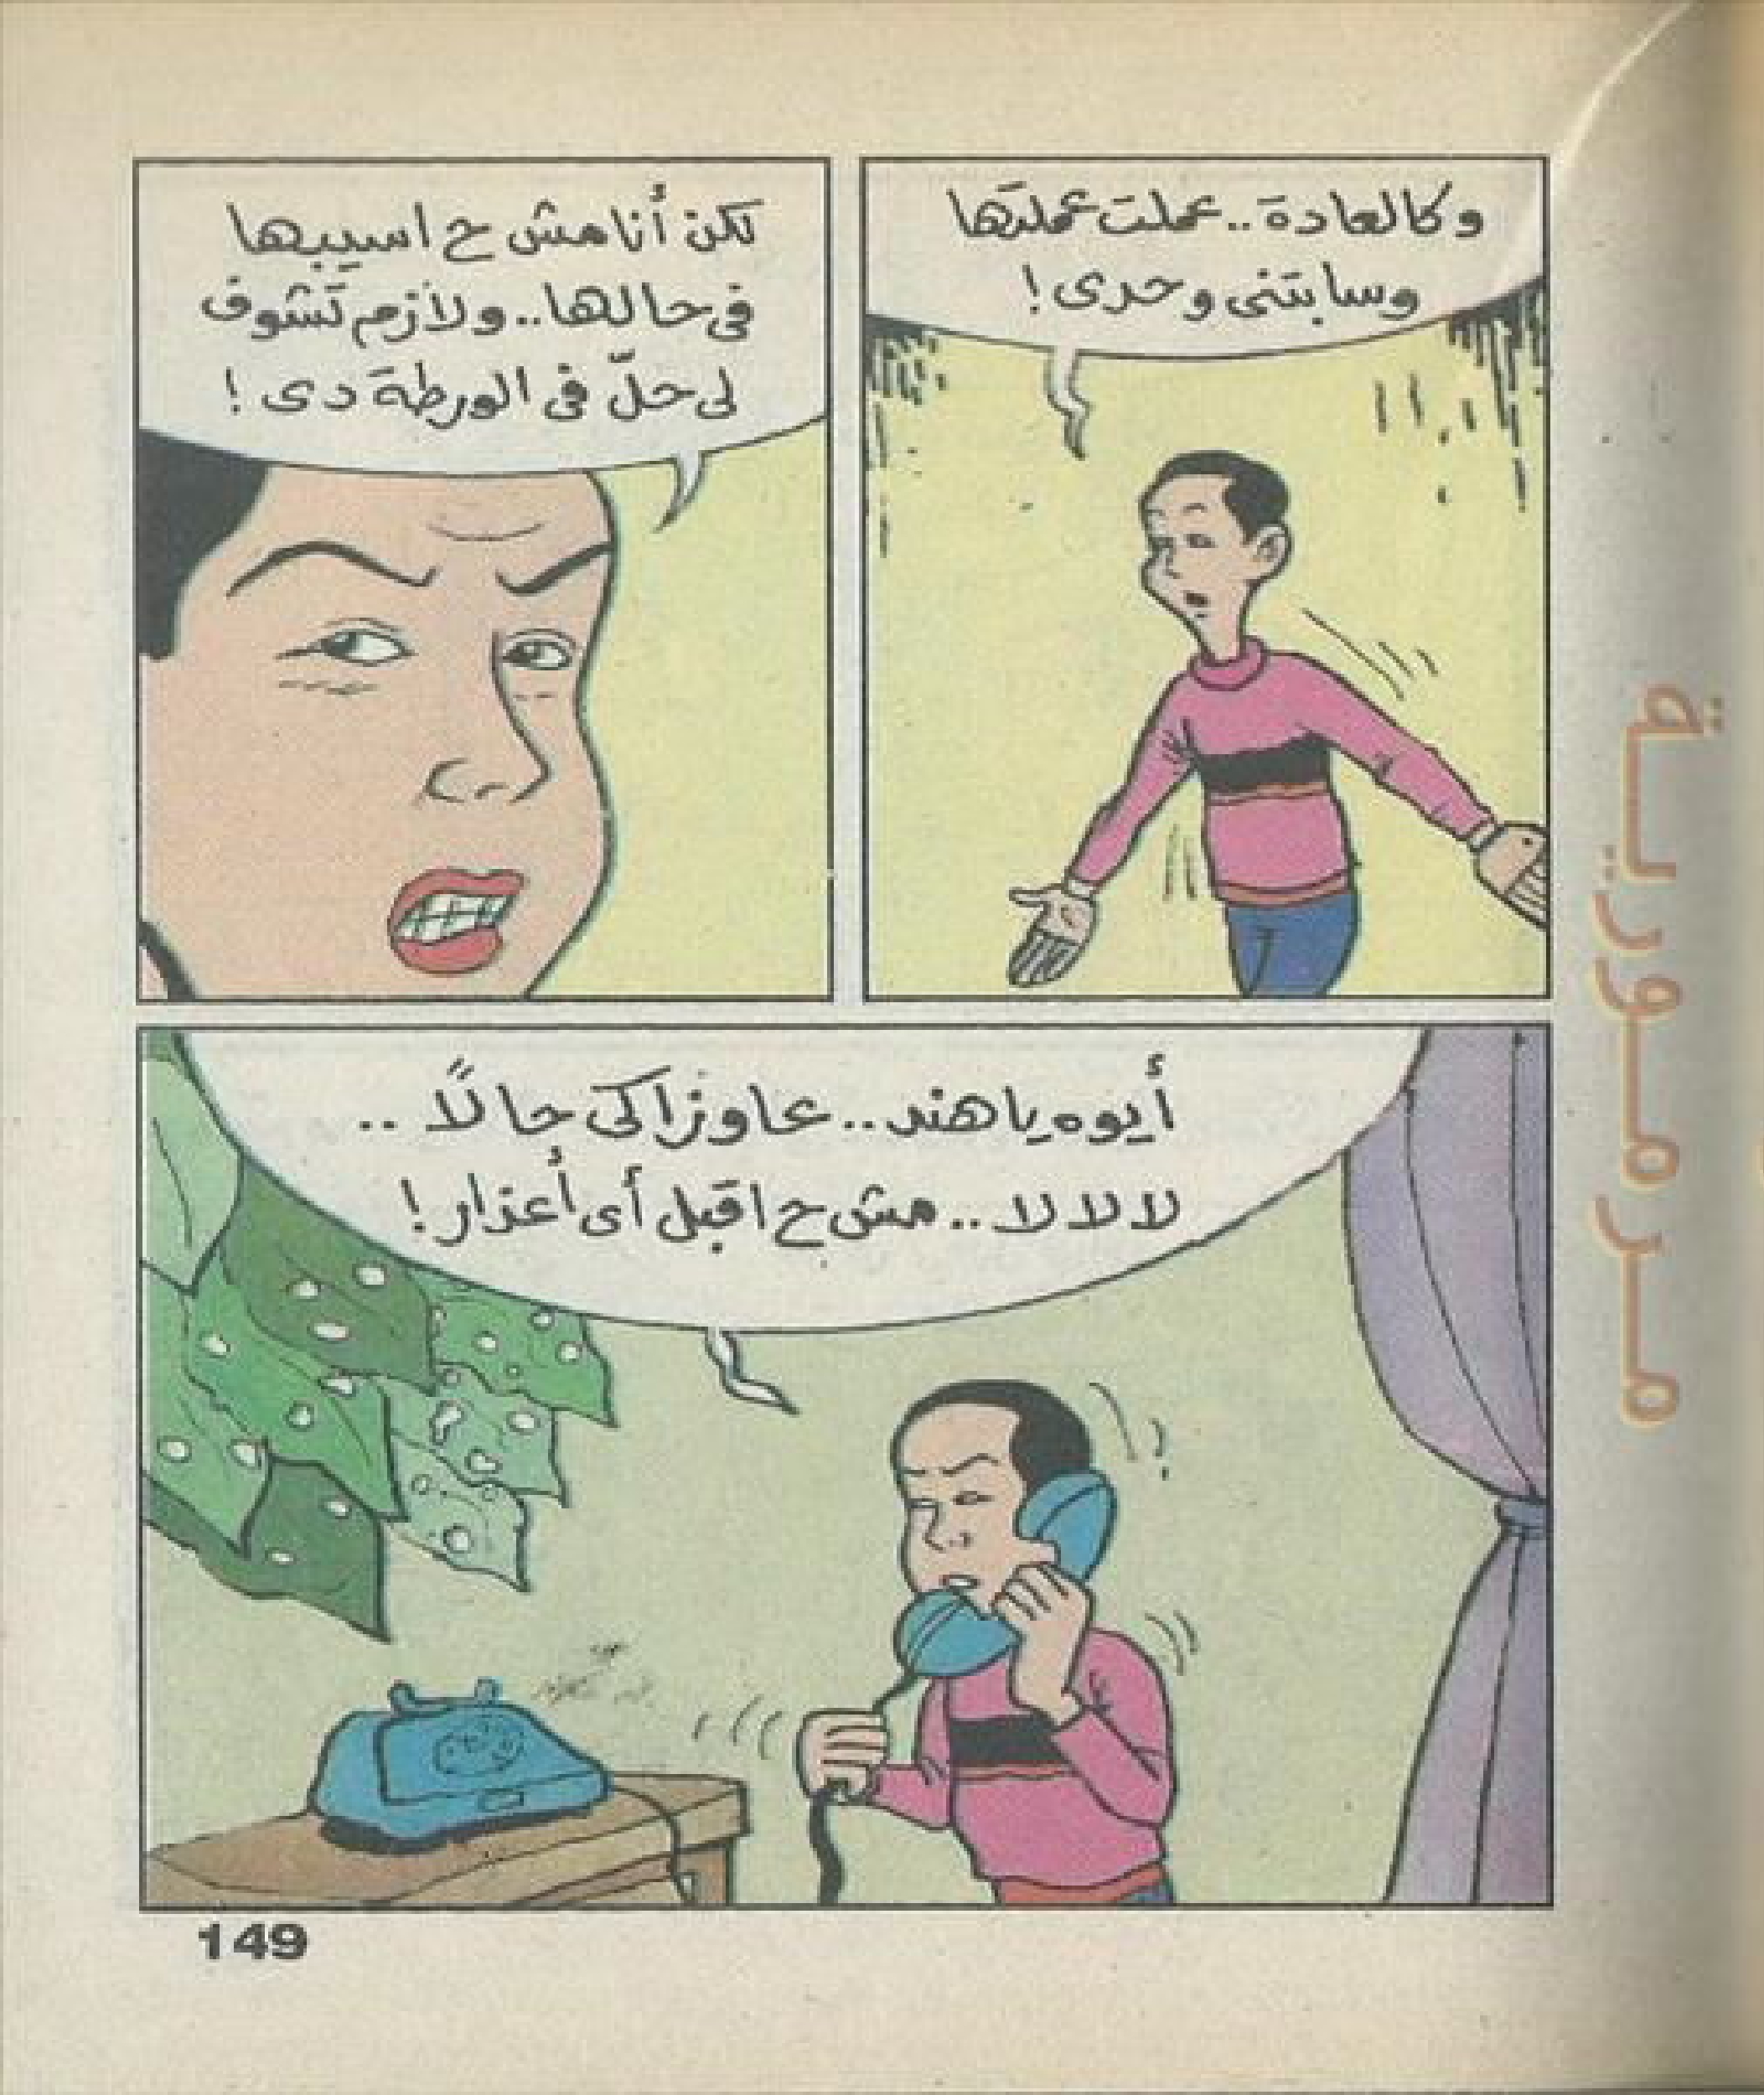 وكالعادة.. عملت عملتها
وسابتنى وحدى!
لكن أنا مش ح اسيبها
فى حالها.. ولازم تشوف
لى حلّ فى الورطة دى!
أيوه يا هند.. عاوزاكى حالًا..
لا لا لا.. مش ح اقبل أى أعذار!
149
مرمورية